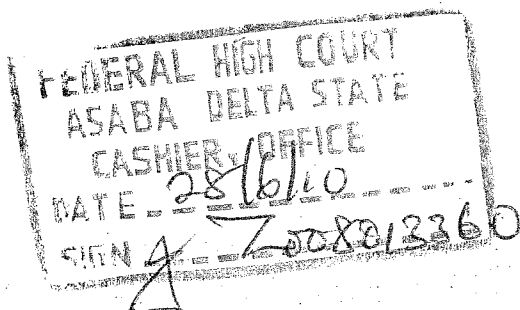 FEDERAL HIGH COURT
ASABA DELTA STATE
CASHIER OFFICE
DATE 28/6/10
SIGN Z008013360